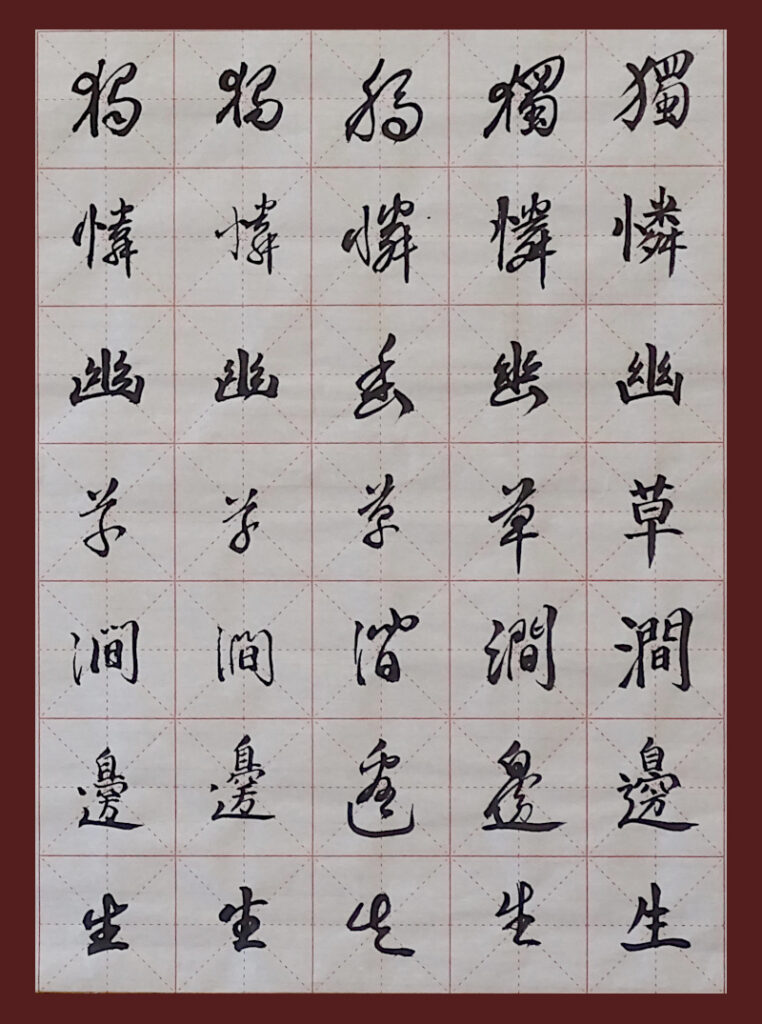 獨憐幽草澗邊生
獨憐幽草澗邊生
獨憐幽草澗邊生
獨憐幽草澗邊生
獨憐幽草澗邊生